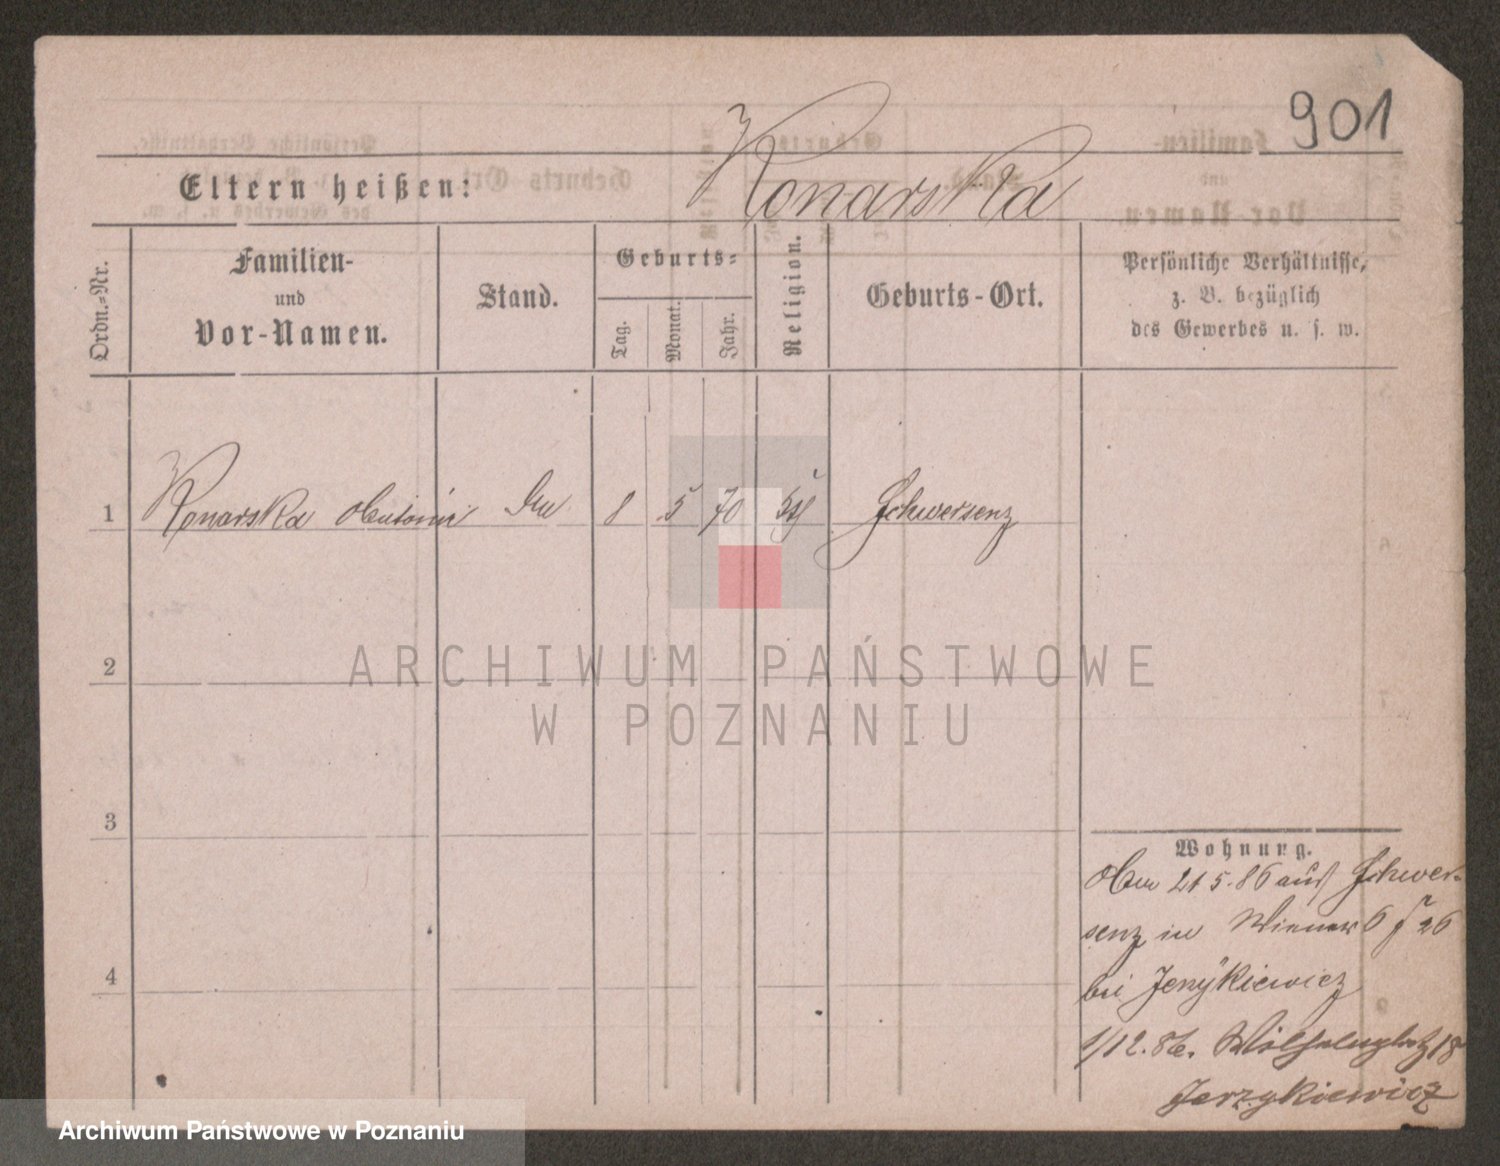 901
Konarska
Eltern heißen:
Ordn.-Nr.
Familien-
und
Vor-Namen.
Stand.
Geburts-
Tag.
Monat.
Jahr.
Religion.
Geburts-Ort.
Persönliche Verhältnisse,
z. B. bezüglich
des Gewerbes u. s. w.
1 Konarska Antonie 8 5 70 Schwersenz
2
ARCHIWUM PAŃSTWOWE
W POZNANIU
3
Wohnung.
21 5. 86 aus Schwer-
senz in 6 26
4
bei Jerzykiewicz
1/12. 86. Wilhelmplatz 18
Jerzykiewicz
Archiwum Państwowe w Poznaniu